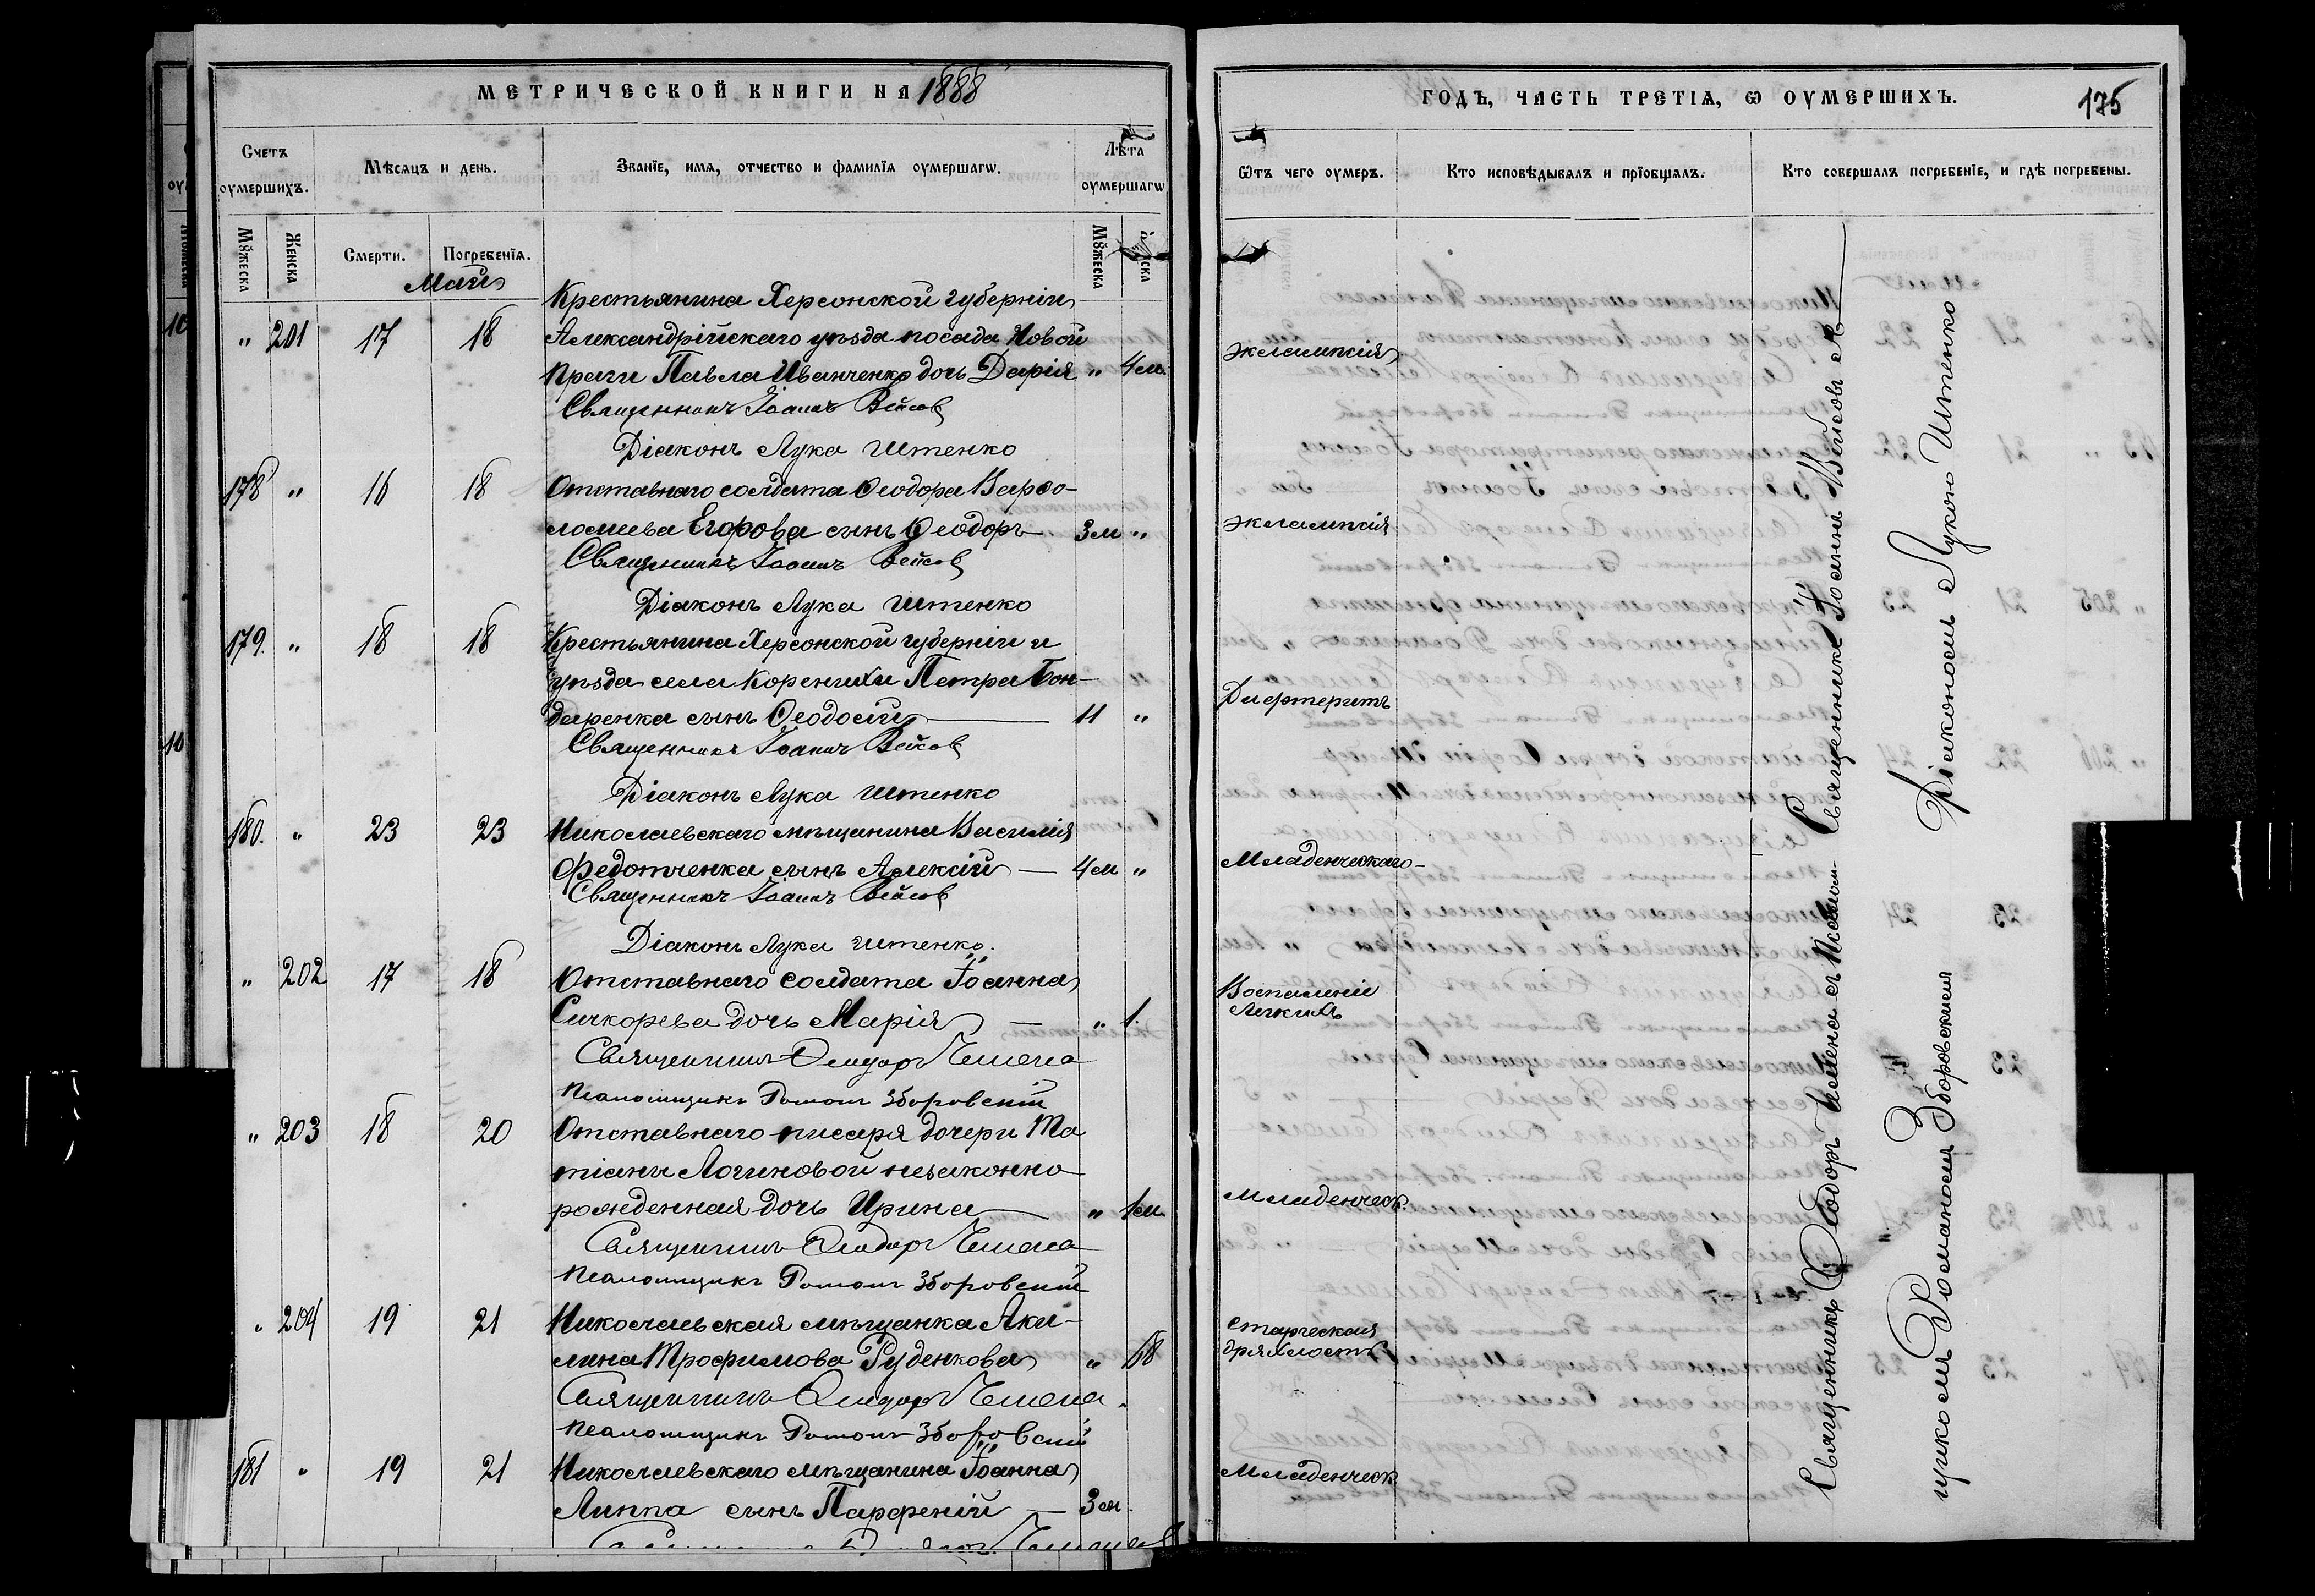 МЕТРИЧЕСКОЙ КНИГИ НА 1888
Счетъ оумершихъ.
Мѣсяцъ и день.
Званіе, имя, отчество и фамилія оумершагѡ.
Лѣта оумершагѡ
Мꙋжеска
Женска
Смерти.
Погребенія.
Мꙋжеска
Май
Крестьянина Херсонской губерніи
" 201 17 18 Александрійскаго уѣзда посада Новой
Праги Павла Иванченко дочь Дарія " 4 м.
Священникъ Іоаннъ Вейсов
Діаконъ Лука Штенко
178 " 16 18 Отставнаго солдата Ѳеодора Варѳо-
ломеева Егорова сынъ Ѳеодоръ 3 м "
Священникъ Іоаннъ Вейсов
Діаконъ Лука Штенко
179. " 18 18 Крестьянина Херсонской губерніи и
уѣзда села Коренихи Петра Бон-
даренка сынъ Ѳеодосій 11 "
Священникъ Іоаннъ Вейсов
Діаконъ Лука Штенко
180. " 23 23 Николаевскаго мѣщанина Василія
Федотченка сынъ Алексій — 4 м "
Священникъ Іоаннъ Вейсов
Діаконъ Лука Штенко.
" 202 17 18 Отставнаго солдата Іоанна
Сичкорева дочь Марія — " 1.
Священникъ Ѳеодоръ Чемена
Псаломщикъ Романъ Зборовскій
" 203 18 20 Отставнаго писаря дочери Та
тіаны Логиновой незаконно
рожденная дочь Ирина " 1 м.
Священникъ Ѳеодоръ Чемена
Псаломщикъ Романъ Зборовскій
" 204 19 21 Николаевская мѣщанка Аки-
лина Трофимова Руденкова " 68
Священникъ Ѳеодоръ Чемена.
Псаломщикъ Романъ Зборовскій
181 " 19 21 Николаевскаго мѣщанина Іоанна
Липпа сынъ Парфеній — 3 м.
ГОДЪ, ЧАСТЬ ТРЕТІЯ, Ѡ ОУМЕРШИХЪ.
175
Ѿтъ чего оумеръ.
Кто исповѣдывалъ и пріобщалъ.
Кто совершалъ погребеніе, и гдѣ погребены.
Эклампсія
Эклампсія
Дифтеритъ
Младенческаго
Воспаленіе
Легкихъ
Младенческ.
Старческая
дряхлость
Младенческ
Священникъ Іоаннъ Вейсовъ съ
Діакономъ Лукою Штенко
Священникъ Ѳеодоръ Чемена съ Псалом-
щикомъ Романомъ Зборовскимъ